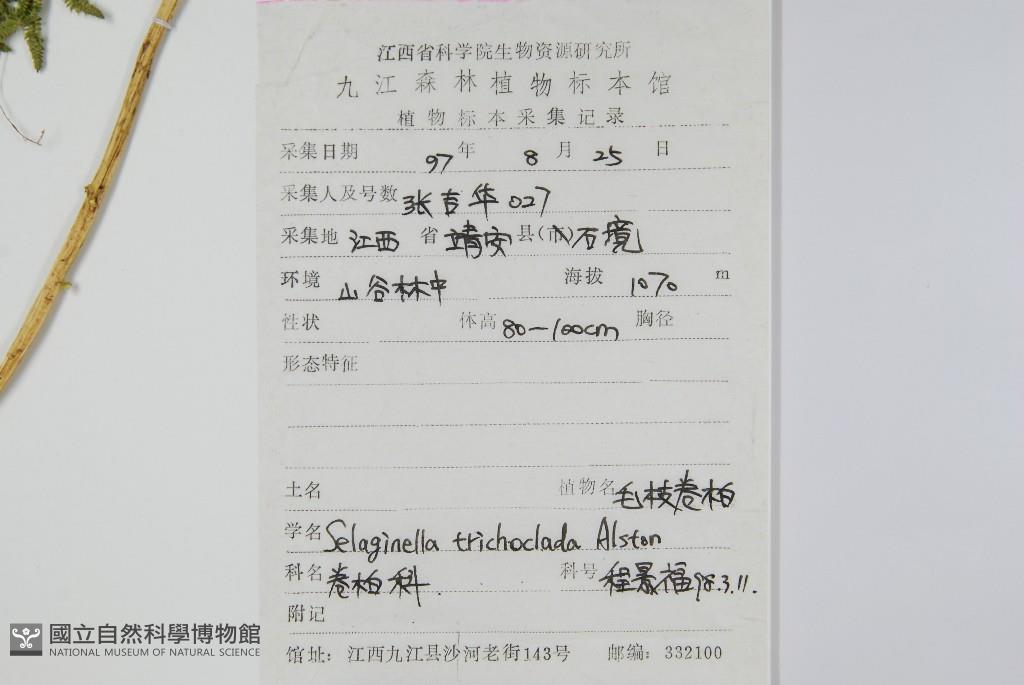 江西省科学院生物资源研究所
九江森林植物标本馆
植物标本采集记录
采集日期 97 年 8 月 25 日
采集人及号数 张吉华 027
采集地 江西 省 靖安 县(市) 石境
环境 山谷林中 海拔 1070 m
性状 体高 80—100cm 胸径
形态特征
土名 植物名 毛枝卷柏
学名 Selaginella trichoclada Alston
科名 卷柏科. 科号 程景福 98.3.11.
附记
馆址: 江西九江县沙河老街143号 邮编: 332100
國立自然科學博物館
NATIONAL MUSEUM OF NATURAL SCIENCE